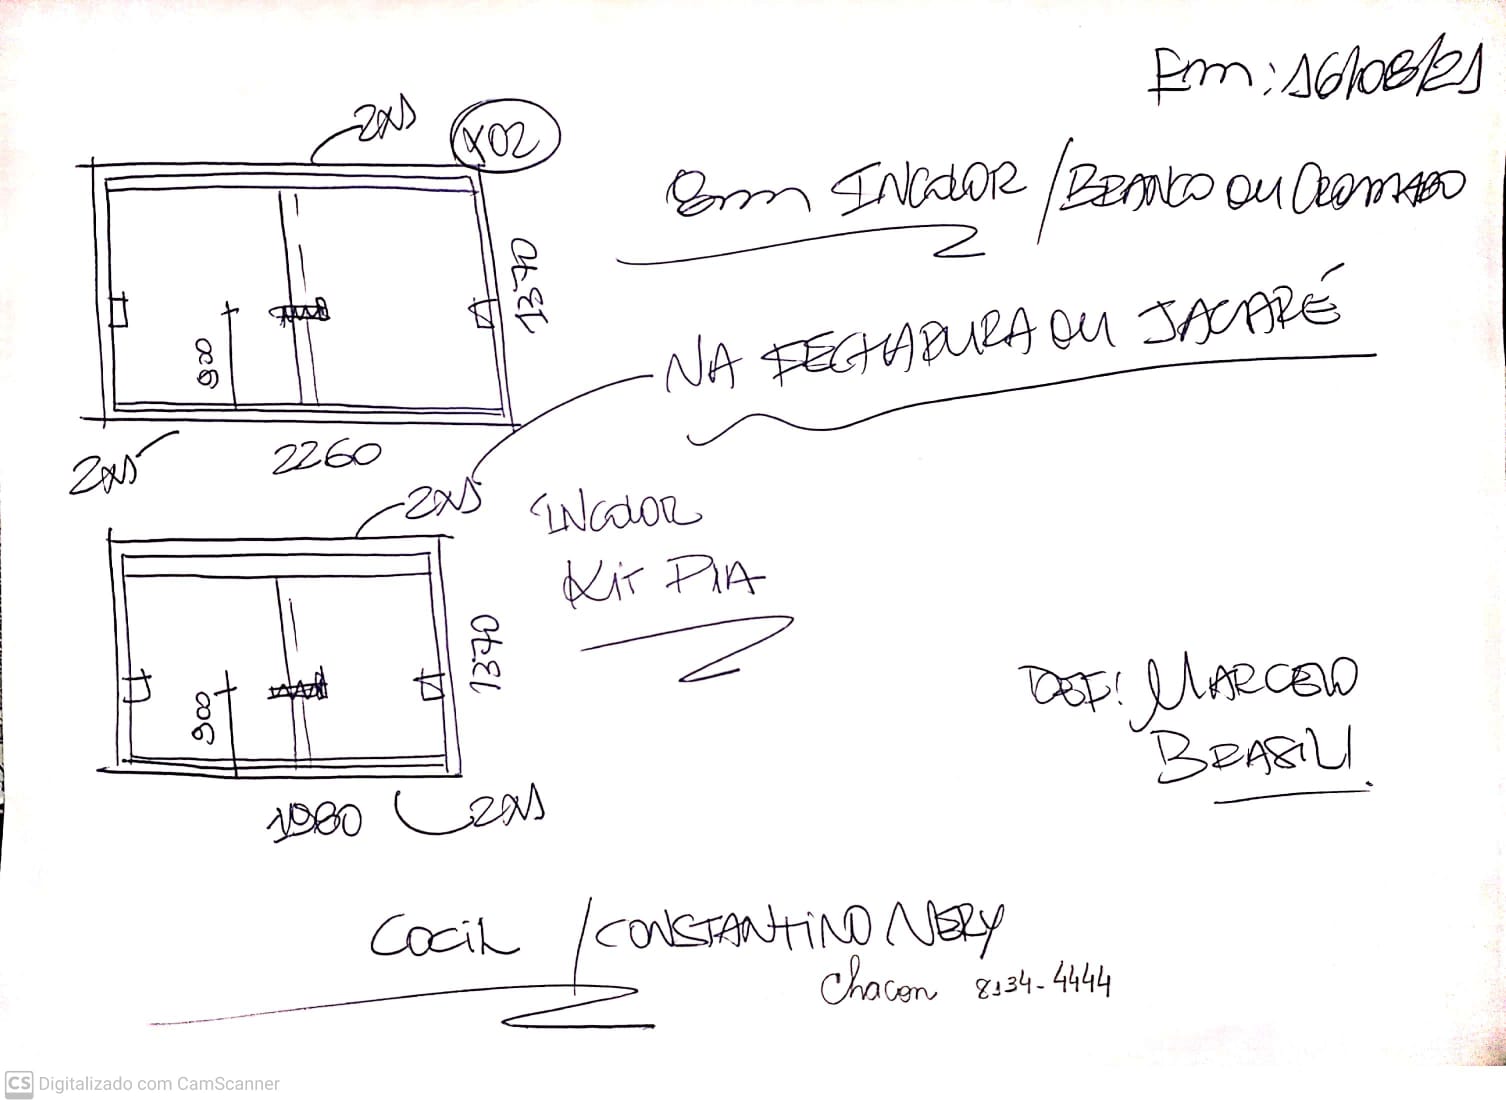 Em: 16/08/21
2x1
x02
8mm INCOLOR / BRANCO OU CROMADO
1370
NA FECHADURA OU JACARÉ
900
2x1
2260
2x1
INCOLOR
KIT PIA
1370
900
REF: MARCELO
BRASIL
1980
2x1
COCIL / CONSTANTINO NERY
Chacon 8134-4444
CS Digitalizado com CamScanner